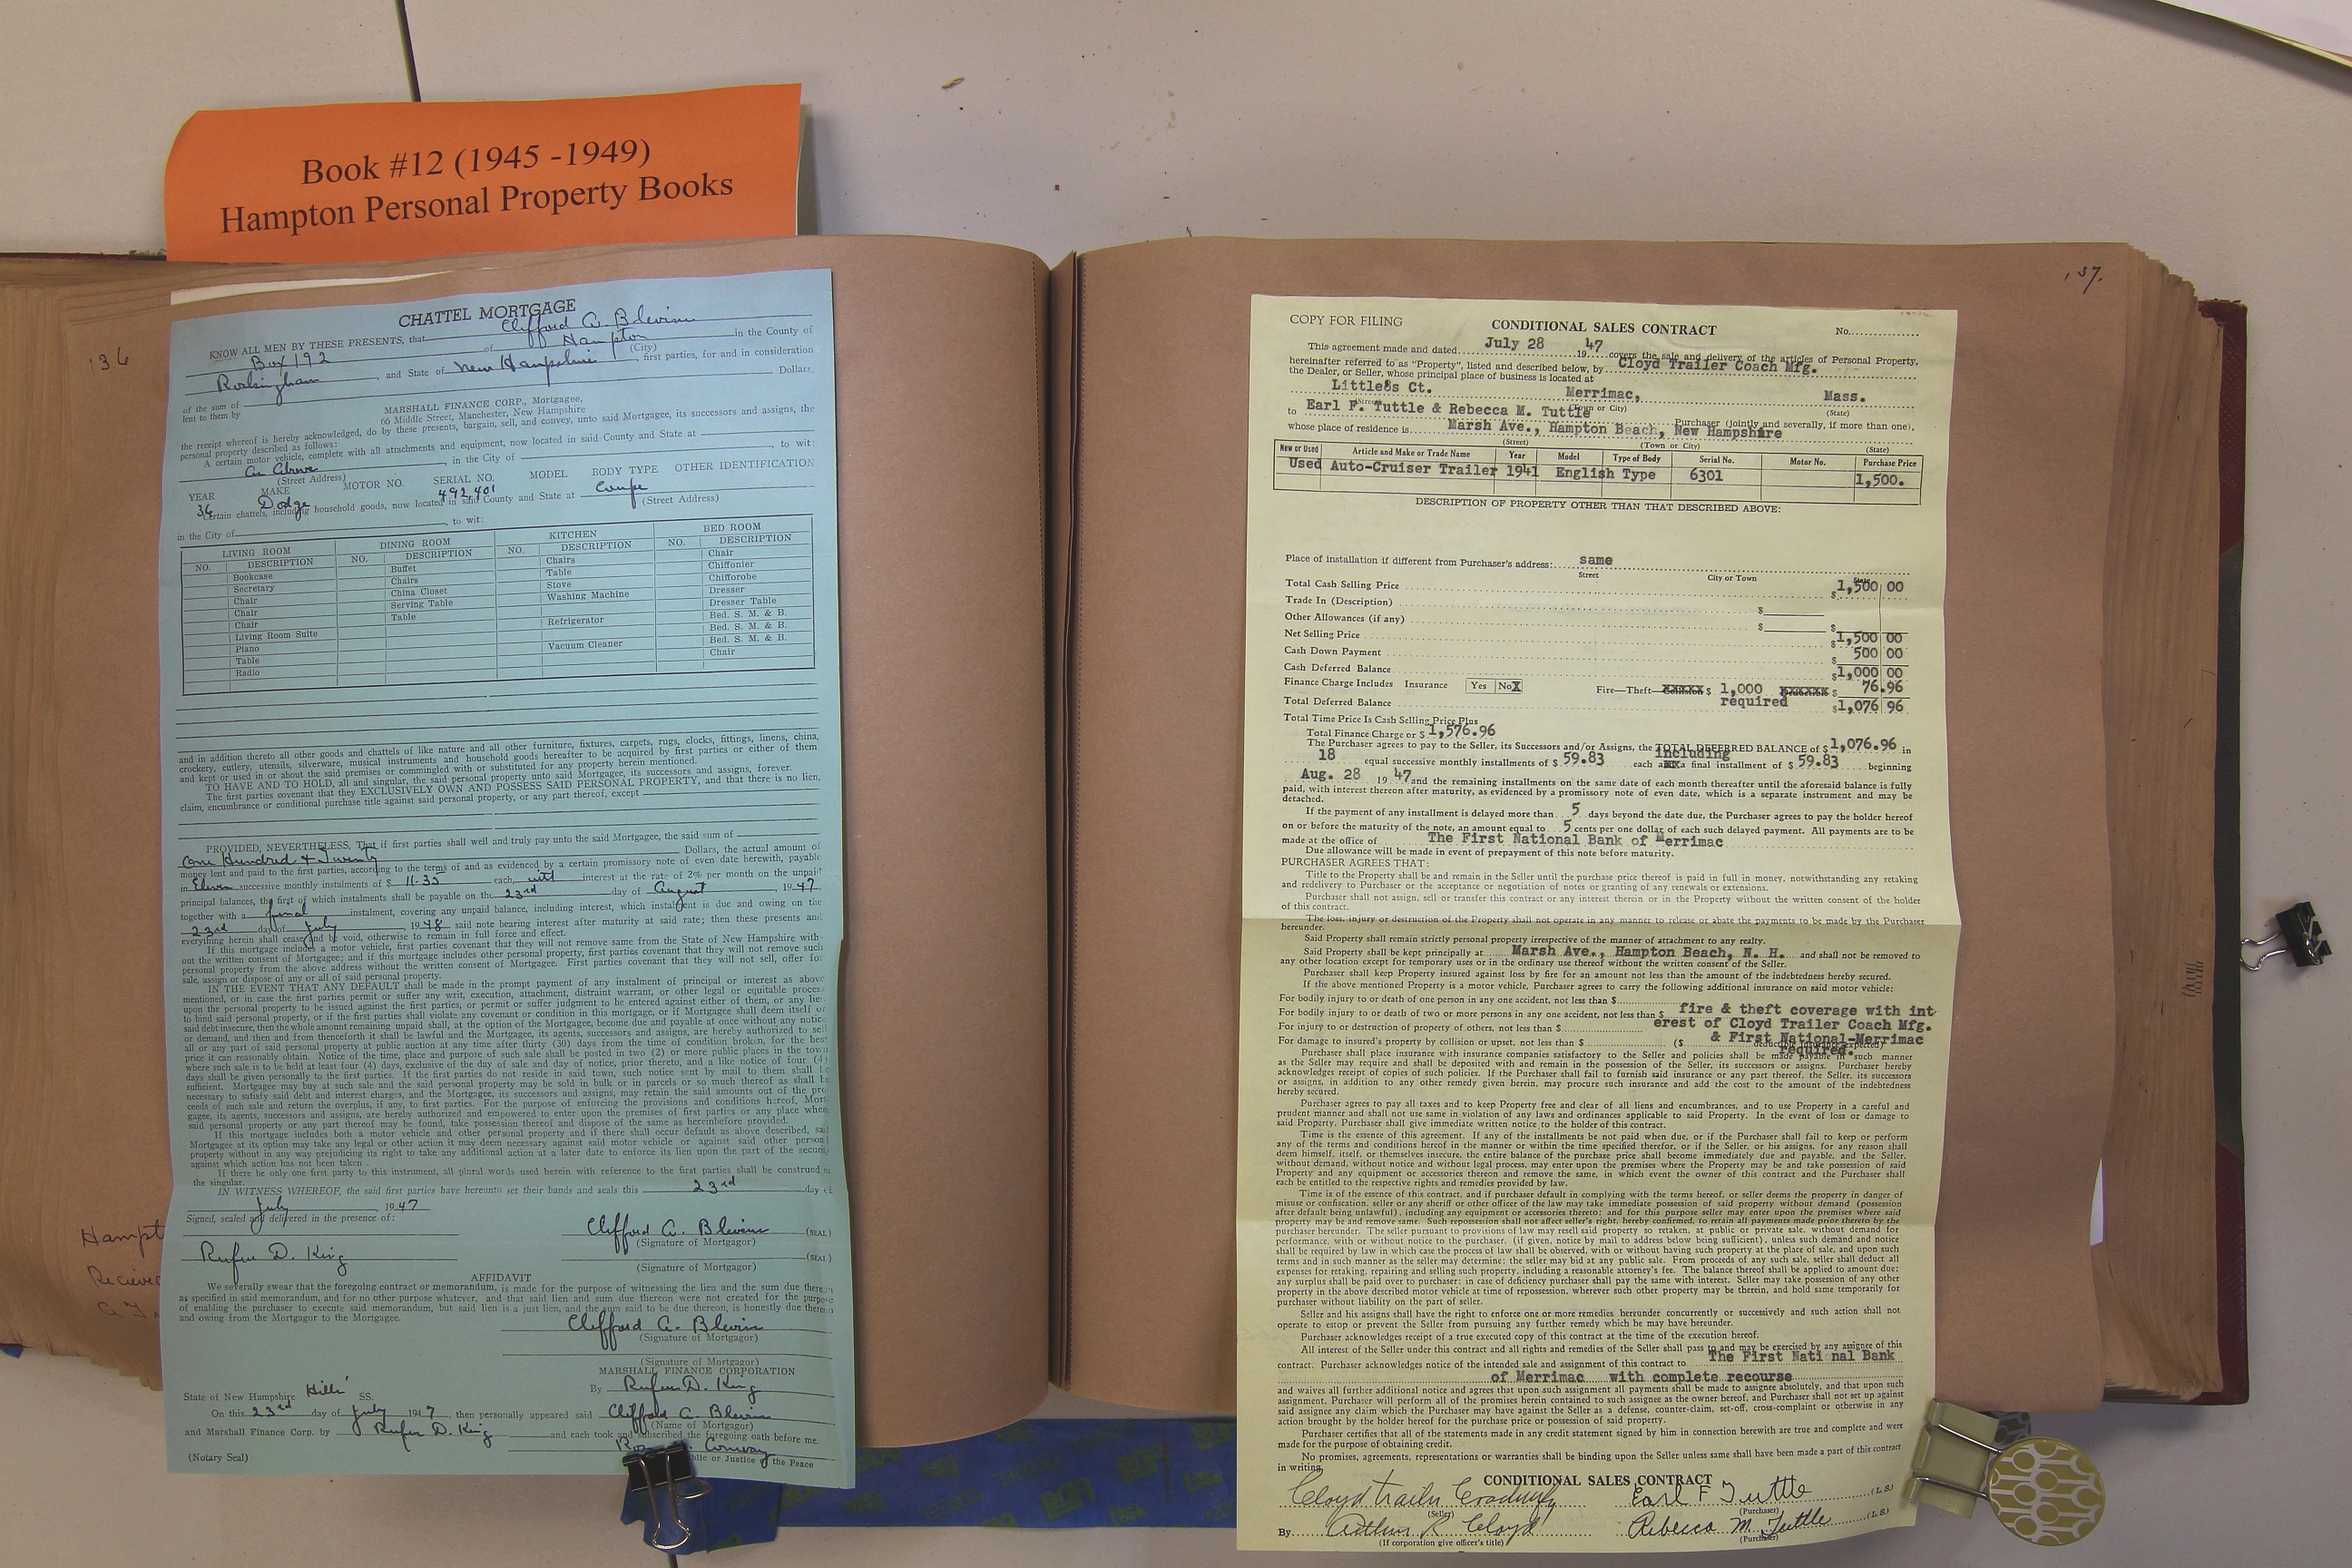 Book #12 (1945 -1949)
Hampton Personal Property Books
136
CHATTEL MORTGAGE
KNOW ALL MEN BY THESE PRESENTS, that Clifford A. Blevins
Box 192 of Hampton in the County of
(City)
Rockingham, and State of New Hampshire, first parties, for and in consideration
of the sum of Dollars,
lent to them by
MARSHALL FINANCE CORP., Mortgagee,
66 Middle Street, Manchester, New Hampshire
the receipt whereof is hereby acknowledged, do by these presents, bargain, sell, and convey, unto said Mortgagee, its successors and assigns, the
personal property described as follows:
A certain motor vehicle, complete with all attachments and equipment, now located in said County and State at
As Above, in the City of , to wit:
(Street Address)
YEAR MAKE MOTOR NO. SERIAL NO. MODEL BODY TYPE OTHER IDENTIFICATION
36 Dodge 492,401 Coupe
Certain chattels, including household goods, now located in said County and State at
(Street Address)
in the City of , to wit:
LIVING ROOM DINING ROOM KITCHEN BED ROOM
NO. DESCRIPTION NO. DESCRIPTION NO. DESCRIPTION NO. DESCRIPTION
Bookcase Buffet Chairs Chair
Secretary Chairs Table Chiffonier
Chair China Closet Stove Chifforobe
Chair Serving Table Washing Machine Dresser
Chair Table Dresser Table
Living Room Suite Refrigerator Bed. S. M. & B.
Piano Bed. S. M. & B.
Table Vacuum Cleaner Bed. S. M. & B.
Radio Chair
and in addition thereto all other goods and chattels of like nature and all other furniture, fixtures, carpets, rugs, clocks, fittings, linens, china,
crockery, cutlery, utensils, silverware, musical instruments and household goods hereafter to be acquired by first parties or either of them
and kept or used in or about the said premises or commingled with or substituted for any property herein mentioned.
TO HAVE AND TO HOLD, all and singular, the said personal property unto said Mortgagee, its successors and assigns, forever.
The first parties covenant that they EXCLUSIVELY OWN AND POSSESS SAID PERSONAL PROPERTY, and that there is no lien,
claim, encumbrance or conditional purchase title against said personal property, or any part thereof, except
PROVIDED, NEVERTHELESS, That if first parties shall well and truly pay unto the said Mortgagee, the said sum of
One Hundred & Twenty Dollars, the actual amount of
money lent and paid to the first parties, according to the terms of and as evidenced by a certain promissory note of even date herewith, payable
in Eleven successive monthly instalments of $ 11.35 each, with interest at the rate of 2% per month on the unpaid
principal balances, the first of which instalments shall be payable on the 23rd day of August, 1947
together with a final instalment, covering any unpaid balance, including interest, which instalment is due and owing on the
23rd day of July 1948 said note bearing interest after maturity at said rate; then these presents and
everything herein shall cease and be void, otherwise to remain in full force and effect.
If this mortgage includes a motor vehicle, first parties covenant that they will not remove same from the State of New Hampshire with-
out the written consent of Mortgagee; and if this mortgage includes other personal property, first parties covenant that they will not remove such
personal property from the above address without the written consent of Mortgagee. First parties covenant that they will not sell, offer for
sale, assign or dispose of any or all of said personal property.
IN THE EVENT THAT ANY DEFAULT shall be made in the prompt payment of any instalment of principal or interest as above
mentioned, or in case the first parties permit or suffer any writ, execution, attachment, distraint warrant, or other legal or equitable process
upon the personal property to be issued against the first parties, or permit or suffer judgment to be entered against either of them, or any lien
to bind said personal property, or if the first parties shall violate any covenant or condition in this mortgage, or if Mortgagee shall deem itself or
said debt insecure, then the whole amount remaining unpaid shall, at the option of the Mortgagee, become due and payable at once without any notice
or demand, and then and from thenceforth it shall be lawful and the Mortgagee, its agents, successors and assigns, are hereby authorized to sell
all or any part of said personal property at public auction at any time after thirty (30) days from the time of condition broken, for the best
price it can reasonably obtain. Notice of the time, place and purpose of such sale shall be posted in two (2) or more public places in the town
where such sale is to be held at least four (4) days, exclusive of the day of sale and day of notice, prior thereto, and a like notice of four (4)
days shall be given personally to the first parties. If the first parties do not reside in said town, such notice sent by mail to them shall be
sufficient. Mortgagee may buy at such sale and the said personal property may be sold in bulk or in parcels or so much thereof as shall be
necessary to satisfy said debt and interest charges, and the Mortgagee, its successors and assigns, may retain the said amounts out of the pro-
ceeds of such sale and return the overplus, if any, to first parties. For the purpose of enforcing the provisions and conditions hereof, Mort-
gagee, its agents, successors and assigns, are hereby authorized and empowered to enter upon the premises of first parties or any place where
said personal property or any part thereof may be found, take possession thereof and dispose of the same as hereinbefore provided.
If this mortgage includes both a motor vehicle and other personal property and if there shall occur default as above described, said
Mortgagee at its option may take any legal or other action it may deem necessary against said motor vehicle or against said other personal
property without in any way prejudicing its right to take any additional action at a later date to enforce its lien upon the part of the security
against which action has not been taken.
If there be only one first party to this instrument, all plural words used herein with reference to the first parties shall be construed in
the singular.
IN WITNESS WHEREOF, the said first parties have hereunto set their hands and seals this 23rd day of
July, 1947
Signed, sealed and delivered in the presence of:
Clifford A. Blevins (SEAL)
(Signature of Mortgagor)
Rufus D. King (SEAL)
(Signature of Mortgagor)
AFFIDAVIT
We severally swear that the foregoing contract or memorandum, is made for the purpose of witnessing the lien and the sum due thereon
as specified in said memorandum, and for no other purpose whatever, and that said lien and sum due thereon were not created for the purpose
of enabling the purchaser to execute said memorandum, but said lien is a just lien, and the sum said to be due thereon, is honestly due thereon
and owing from the Mortgagor to the Mortgagee.
Clifford A. Blevins
(Signature of Mortgagor)
(Signature of Mortgagor)
MARSHALL FINANCE CORPORATION
State of New Hampshire Hills' SS. By Rufus D. King
On this 23rd day of July 1947, then personally appeared said Clifford A. Blevins
(Name of Mortgagor)
and Marshall Finance Corp. by Rufus D. King and each took and subscribed the foregoing oath before me.
Conway
(Notary Seal) Public or Justice of the Peace
Hampt
Recieved
137.
COPY FOR FILING CONDITIONAL SALES CONTRACT No.
This agreement made and dated July 28 1947 covers the sale and delivery of the articles of Personal Property,
hereinafter referred to as "Property", listed and described below, by Cloyd Trailer Coach Mfg.
the Dealer, or Seller, whose principal place of business is located at
Little8s Ct. Merrimac, Mass.
(Street) (Town or City) (State)
to Earl F. Tuttle & Rebecca M. Tuttle Purchaser (jointly and severally, if more than one),
whose place of residence is Marsh Ave., Hampton Beach, New Hampshire
(Street) (Town or City) (State)
New or Used Article and Make or Trade Name Year Model Type of Body Serial No. Motor No. Purchase Price
Used Auto-Cruiser Trailer 1941 English Type 6301 1,500.
DESCRIPTION OF PROPERTY OTHER THAN THAT DESCRIBED ABOVE:
Place of installation if different from Purchaser's address: same
Street City or Town State
Total Cash Selling Price $1,500 00
Trade In (Description) $
Other Allowances (if any) $ $
Net Selling Price $1,500 00
Cash Down Payment $ 500 00
Cash Deferred Balance $1,000 00
Finance Charge Includes Insurance Yes No X Fire—Theft— $ 1,000 $ 76.96
required
Total Deferred Balance $1,076 96
Total Time Price Is Cash Selling Price Plus
Total Finance Charge or $ 1,576.96
The Purchaser agrees to pay to the Seller, its Successors and/or Assigns, the TOTAL DEFERRED BALANCE of $ 1,076.96 in
18 equal successive monthly installments of $ 59.83 each including a final installment of $ 59.83 beginning
Aug. 28 1947 and the remaining installments on the same date of each month thereafter until the aforesaid balance is fully
paid, with interest thereon after maturity, as evidenced by a promissory note of even date, which is a separate instrument and may be
detached.
If the payment of any installment is delayed more than 5 days beyond the date due, the Purchaser agrees to pay the holder hereof
on or before the maturity of the note, an amount equal to 5 cents per one dollar of each such delayed payment. All payments are to be
made at the office of The First National Bank of Merrimac
Due allowance will be made in event of prepayment of this note before maturity.
PURCHASER AGREES THAT:
Title to the Property shall be and remain in the Seller until the purchase price thereof is paid in full in money, notwithstanding any retaking
and redelivery to Purchaser or the acceptance or negotiation of notes or granting of any renewals or extensions.
Purchaser shall not assign, sell or transfer this contract or any interest therein or in the Property without the written consent of the holder
of this contract.
The loss, injury or destruction of the Property shall not operate in any manner to release or abate the payments to be made by the Purchaser
hereunder.
Said Property shall remain strictly personal property irrespective of the manner of attachment to any realty.
Said Property shall be kept principally at Marsh Ave., Hampton Beach, N. H. and shall not be removed to
any other location except for temporary uses or in the ordinary use thereof without the written consent of the Seller.
Purchaser shall keep Property insured against loss by fire for an amount not less than the amount of the indebtedness hereby secured.
If the above mentioned Property is a motor vehicle, Purchaser agrees to carry the following additional insurance on said motor vehicle:
For bodily injury to or death of one person in any one accident, not less than $
For bodily injury to or death of two or more persons in any one accident, not less than $ fire & theft coverage with int
For injury to or destruction of property of others, not less than $ erest of Cloyd Trailer Coach Mfg.
For damage to insured's property by collision or upset, not less than $ ($ & First National-Merrimac
required.
Purchaser shall place insurance with insurance companies satisfactory to the Seller and policies shall be made payable in such manner
as the Seller may require and shall be deposited with and remain in the possession of the Seller, its successors or assigns. Purchaser hereby
acknowledges receipt of copies of such policies. If the Purchaser shall fail to furnish said insurance or any part thereof, the Seller, its successors
or assigns, in addition to any other remedy given herein, may procure such insurance and add the cost to the amount of the indebtedness
hereby secured.
Purchaser agrees to pay all taxes and to keep Property free and clear of all liens and encumbrances, and to use Property in a careful and
prudent manner and shall not use same in violation of any laws and ordinances applicable to said Property. In the event of loss or damage to
said Property, Purchaser shall give immediate written notice to the holder of this contract.
Time is the essence of this agreement. If any of the installments be not paid when due, or if the Purchaser shall fail to keep or perform
any of the terms and conditions hereof in the manner or within the time specified therefor, or if the Seller, or his assigns, for any reason shall
deem himself, itself, or themselves insecure, the entire balance of the purchase price shall become immediately due and payable, and the Seller,
without demand, without notice and without legal process, may enter upon the premises where the Property may be and take possession of said
Property and any equipment or accessories thereon and remove the same, in which event the owner of this contract and the Purchaser shall
each be entitled to the respective rights and remedies provided by law.
Time is of the essence of this contract, and if purchaser default in complying with the terms hereof, or seller deems the property in danger of
misuse or confiscation, seller or any sheriff or other officer of the law may take immediate possession of said property without demand (possession
after default being unlawful), including any equipment or accessories thereto; and for this purpose seller may enter upon the premises where said
property may be and remove same. Such repossession shall not affect seller's right, hereby confirmed, to retain all payments made prior thereto by the
purchaser hereunder. The seller pursuant to provisions of law may resell said property so retaken, at public or private sale, without demand for
performance, with or without notice to the purchaser, (if given, notice by mail to address below being sufficient), unless such demand and notice
shall be required by law in which case the process of law shall be observed, with or without having such property at the place of sale, and upon such
terms and in such manner as the seller may determine: the seller may bid at any public sale. From proceeds of any such sale, seller shall deduct all
expenses for retaking, repairing and selling such property, including a reasonable attorney's fee. The balance thereof shall be applied to amount due:
any surplus shall be paid over to purchaser: in case of deficiency purchaser shall pay the same with interest. Seller may take possession of any other
property in the above described motor vehicle at time of repossession, wherever such other property may be therein, and hold same temporarily for
purchaser without liability on the part of seller.
Seller and his assigns shall have the right to enforce one or more remedies hereunder concurrently or successively and such action shall not
operate to estop or prevent the Seller from pursuing any further remedy which he may have hereunder.
Purchaser acknowledges receipt of a true executed copy of this contract at the time of the execution hereof.
All interest of the Seller under this contract and all rights and remedies of the Seller shall pass to and may be exercised by any assignee of this
contract. Purchaser acknowledges notice of the intended sale and assignment of this contract to The First National Bank
of Merrimac with complete recourse
and waives all further additional notice and agrees that upon such assignment all payments shall be made to assignee absolutely, and that upon such
assignment, Purchaser will perform all of the promises herein contained to such assignee as the owner hereof, and Purchaser shall not set up against
said assignee any claim which the Purchaser may have against the Seller as a defense, counter-claim, set-off, cross-complaint or otherwise in any
action brought by the holder hereof for the purchase price or possession of said property.
Purchaser certifies that all of the statements made in any credit statement signed by him in connection herewith are true and complete and were
made for the purpose of obtaining credit.
No promises, agreements, representations or warranties shall be binding upon the Seller unless same shall have been made a part of this contract
in writing.
CONDITIONAL SALES CONTRACT
Cloyd Trailer Earl F Tuttle (L.S.)
(Seller) (Purchaser)
By Arthur R Cloyd Rebecca M. Tuttle (L.S.)
(If corporation give officer's title) (Purchaser)